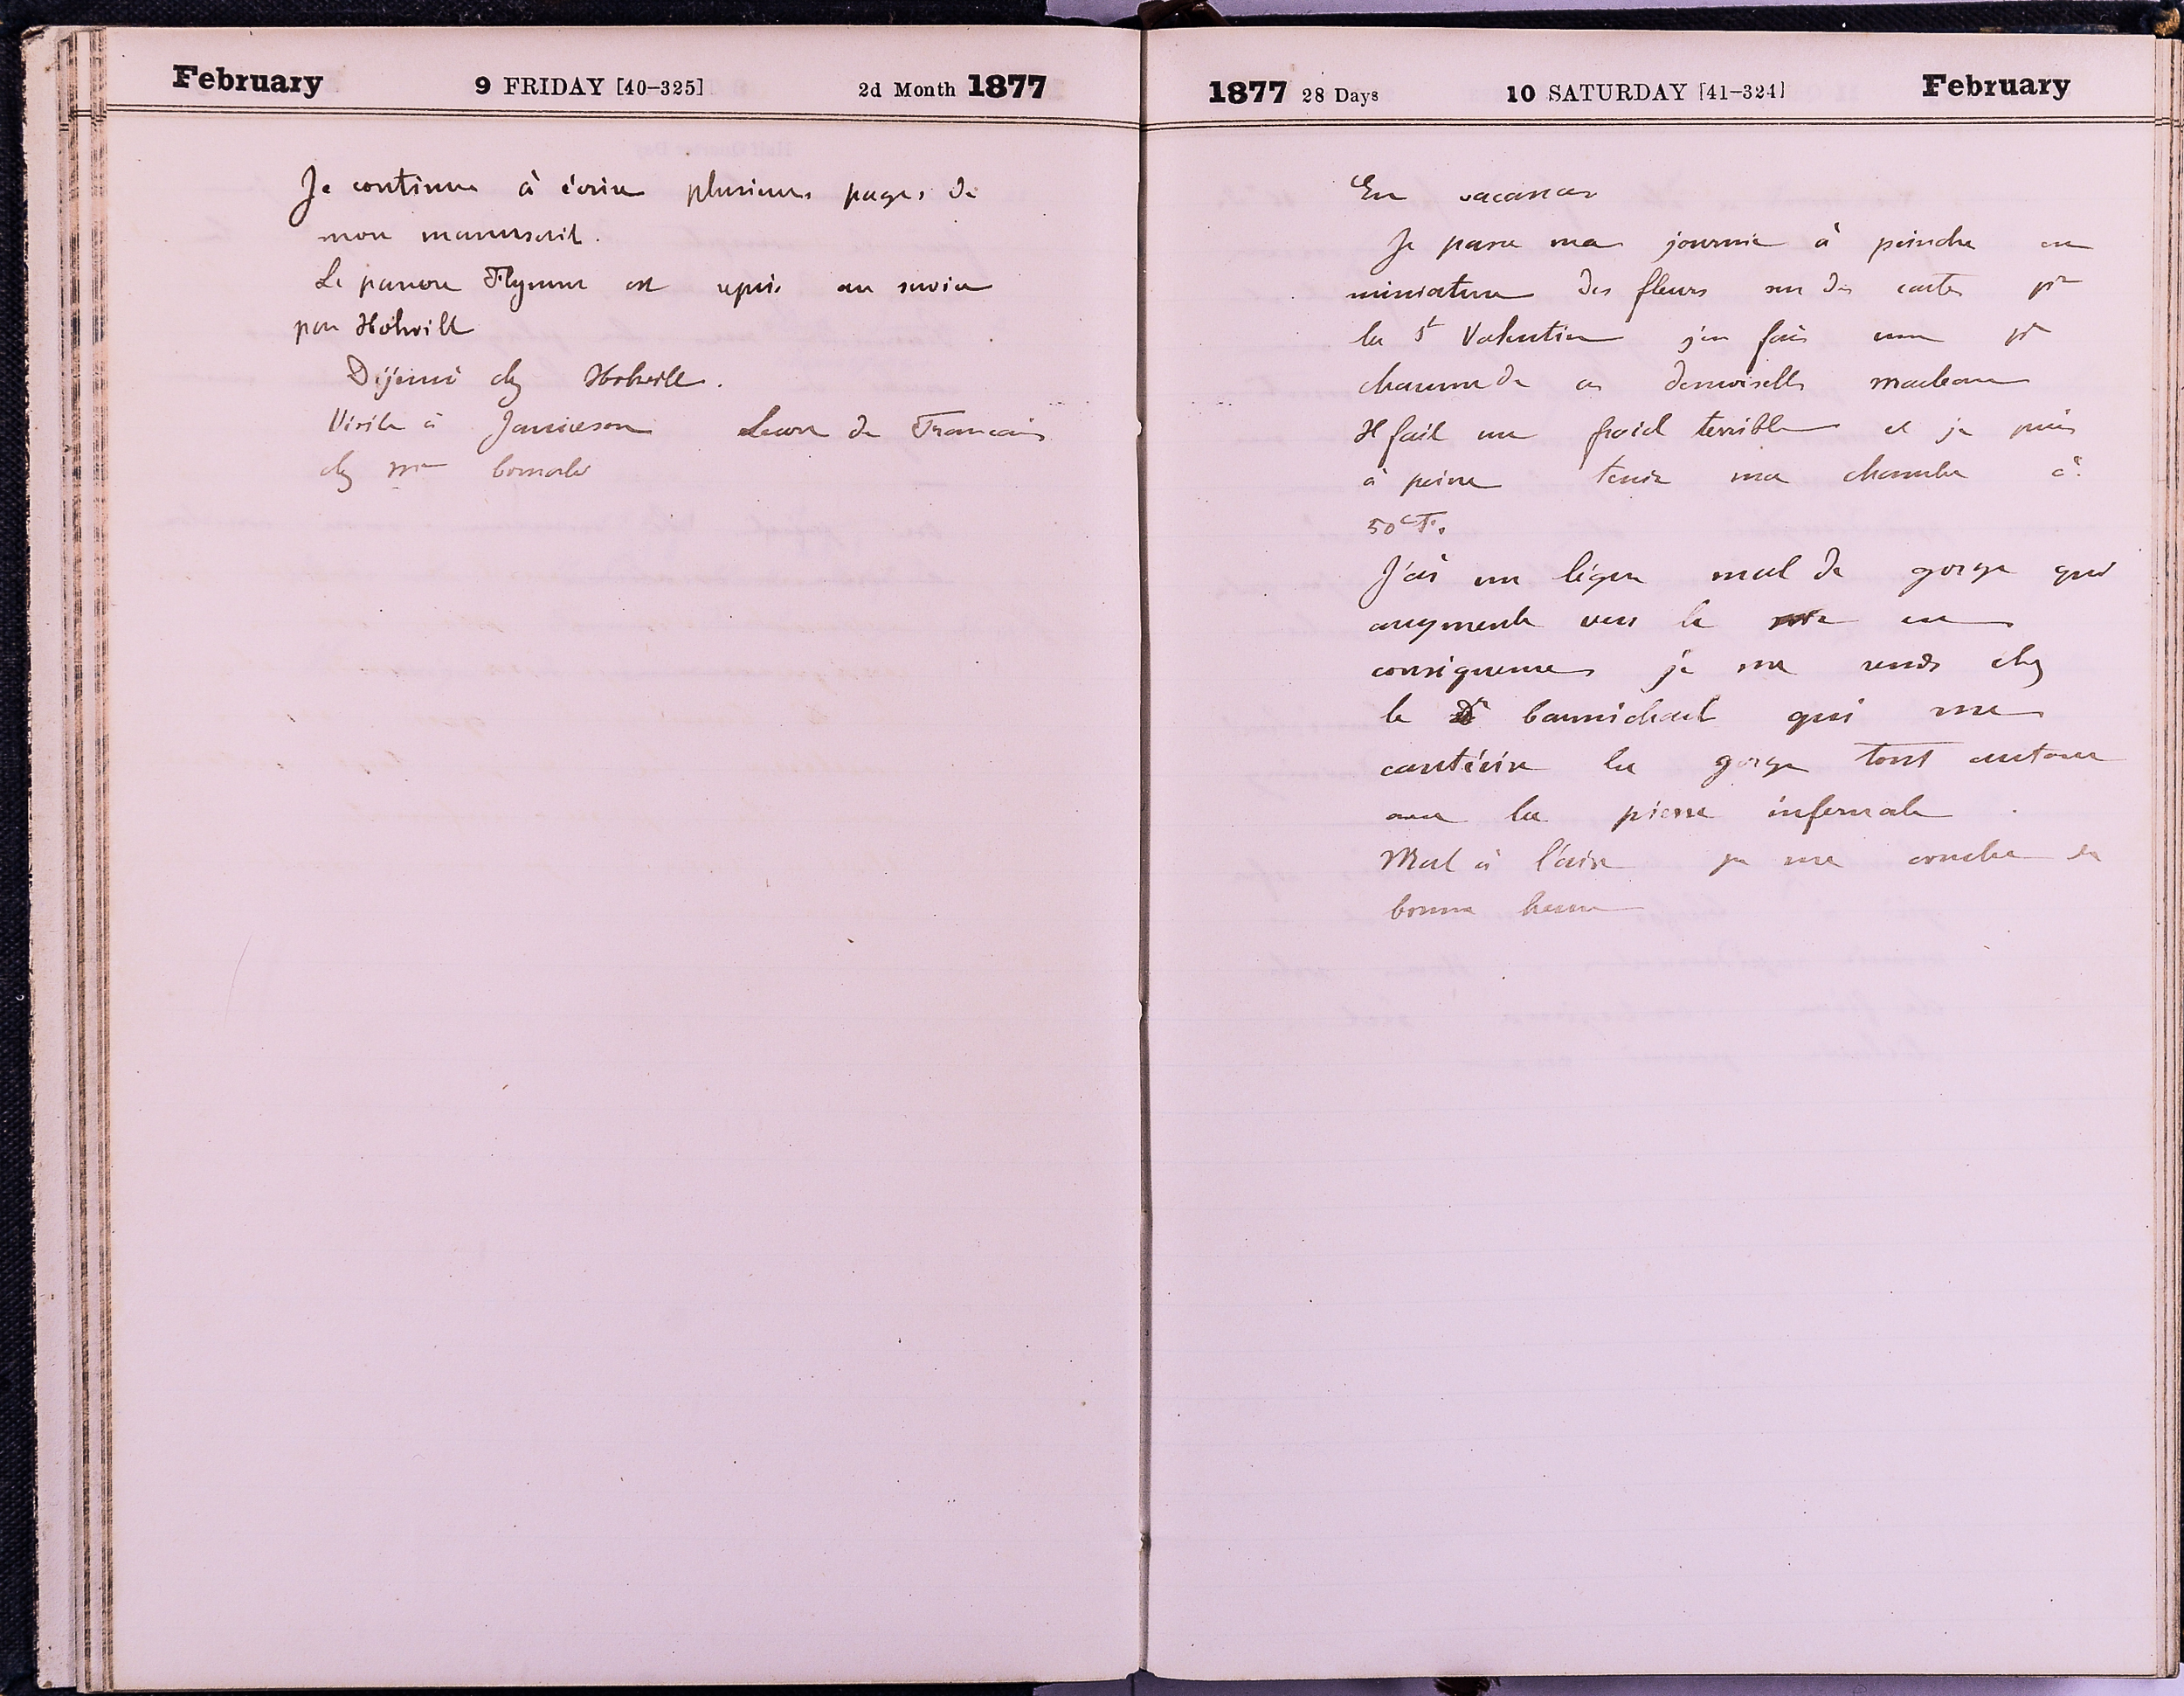 February 9 FRIDAY [40-325] 2d Month 1877
Je continue à écrire plusieurs pages de
mon manuscrit.
Le pauvre Flynne est repris au service
par Holwill
Déjeuné chez Holwill.
Visite à Jamieson Lecon de Francais
chez Mme
1877 28 Days 10 SATURDAY [41-324] February
En vacances
Je passe ma journée à peindre en
miniature des fleurs sur des cartes pr
la St Valentin j'en fais une pr
chacune de ces demoiselles macleane
Il fait un froid terrible et je puis
à peine tenir ma chambre à
50° F.
J'ai un léger mal de gorge qui
augmente vers le soir en
consequence je me rends chez
le Dr Carmichael qui me
cautérise la gorge tout autour
avec la pierre infernale.
Mal à l'aise je me couche de
bonne heure